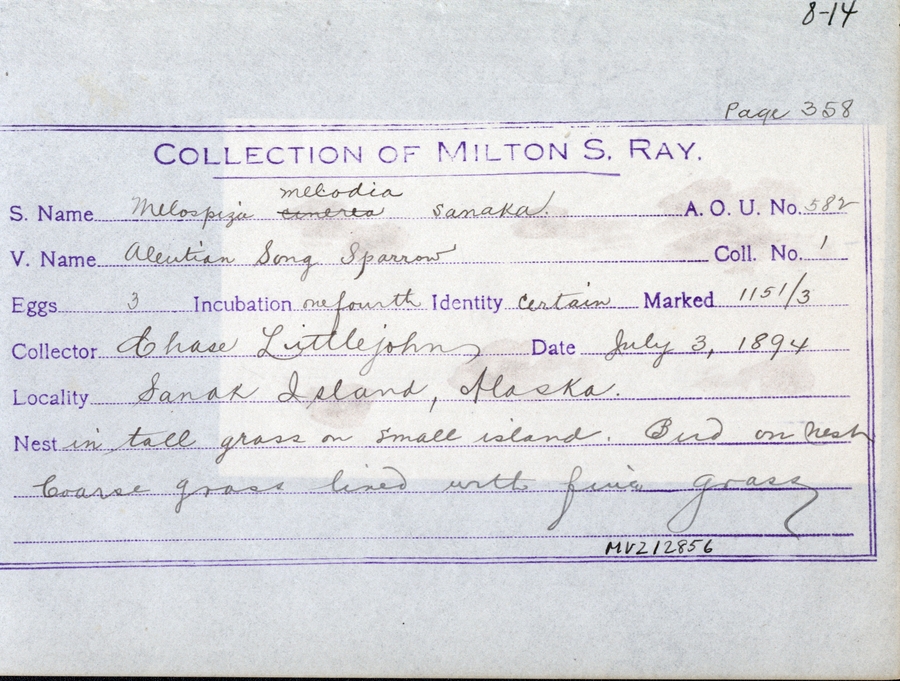 8-14
Page 358
COLLECTION OF MILTON S. RAY.
melodia
S. Name Melospiza cinerea sanaka. A. O. U. No. 582
V. Name Aleutian Song Sparrow Coll. No. 1
Eggs 3 Incubation one fourth Identity certain Marked 1151/3
Collector Chase Littlejohn Date July 3, 1894
Locality Sanak Island, Alaska.
Nest in tall grass on small island. Bird on nest
Coarse grass lined with fine grass
MVZ12856